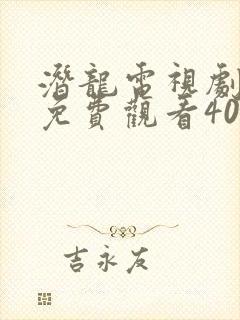 潛龍電視劇
免費觀看40
吉永友